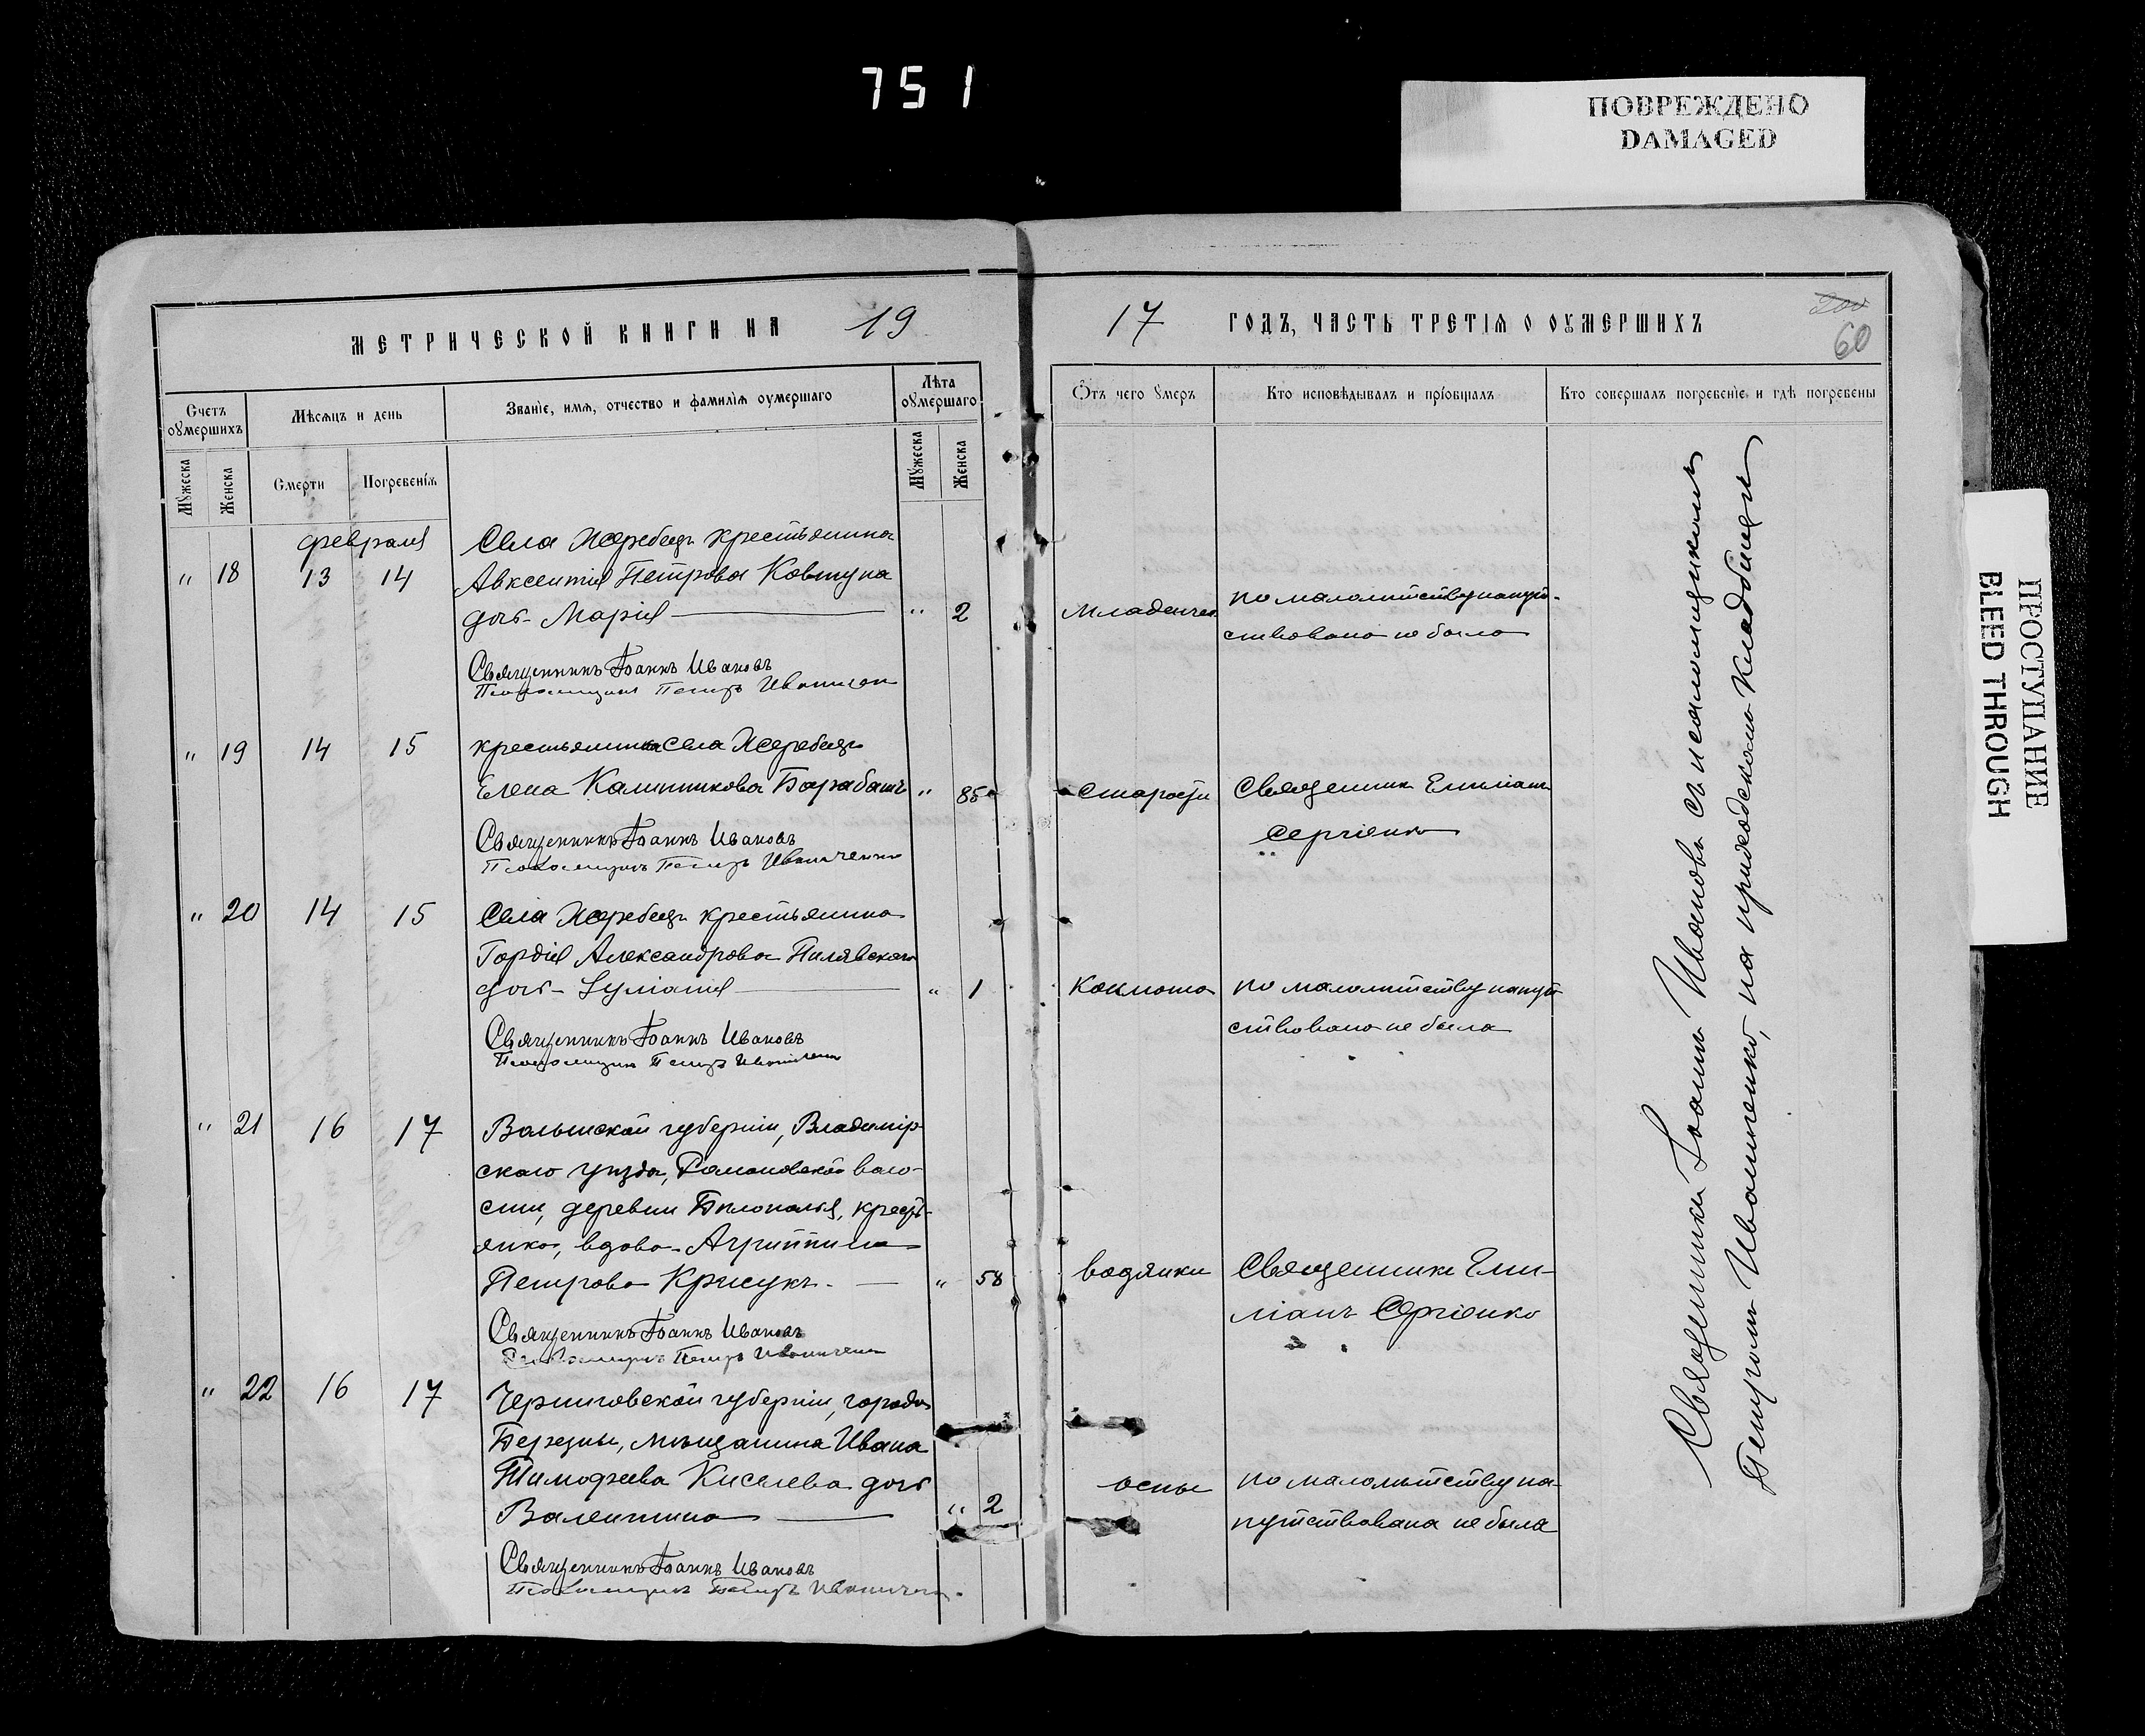 751
ПОВРЕЖДЕНО
DAMAGED
МЕТРИЧЕСКОЙ КНИГИ НА 19
17 ГОДЪ, ЧАСТЬ ТРЕТІЯ О ОУМЕРШИХЪ
200
60
Счетъ оумершихъ
Мѣсяцъ и день
Званіе, имя, отчество и фамилія оумершаго
Лѣта оумершаго
Отъ чего умеръ
Кто исповѣдывалъ и пріобщалъ
Кто совершалъ погребеніе и гдѣ погребены
Мужеска
Женска
Смерти
Погребенія
Мужеска
Женска
февраля
Села Жеребецъ крестьянина
" 18 13 14 Авксентія Петрова Ковтуна
дочь Марія " 2 младенчес. по малолѣтству напут-
ствована не была
Священникъ Іоаннъ Ивановъ
Псаломщикъ Петръ Иванченко
" 19 14 15 крестьянка села Жеребецъ
Елена Калинникова Барабашъ " 85 старости Священникъ Емиліанъ
Сергіенко
Священникъ Іоаннъ Ивановъ
Псаломщикъ Петръ Иванченко
" 20 14 15 Села Жеребецъ крестьянина
Гордія Александрова Пилявскаго
дочь Іуліанія " 1 коклюша по малолѣтству напут-
ствована не была
Священникъ Іоаннъ Ивановъ
Псаломщикъ Петръ Иванченко
" 21 16 17 Волынской губерніи, Владимір-
скаго уѣзда, Романовской воло-
сти, деревни Бѣлополья, кресть-
янка, вдова Агриппина
Петрова Крисукъ. " 58 водянки Священникъ Еми-
ліанъ Сергіенко
Священникъ Іоаннъ Ивановъ
Псаломщикъ Петръ Иванченко
" 22 16 17 Черниговской губерніи, города
Березны, мѣщанина Ивана
Тимофеева Киселева дочь
Валентина " 2 оспы по малолѣтству на-
путствована не была
Священникъ Іоаннъ Ивановъ
Псаломщикъ Петръ Иванченко
Священникъ Іоаннъ Ивановъ съ псаломщикомъ
Петромъ Иванченко, на приходскомъ кладбищѣ
ПРОСТУПАНИЕ
BLEED THROUGH